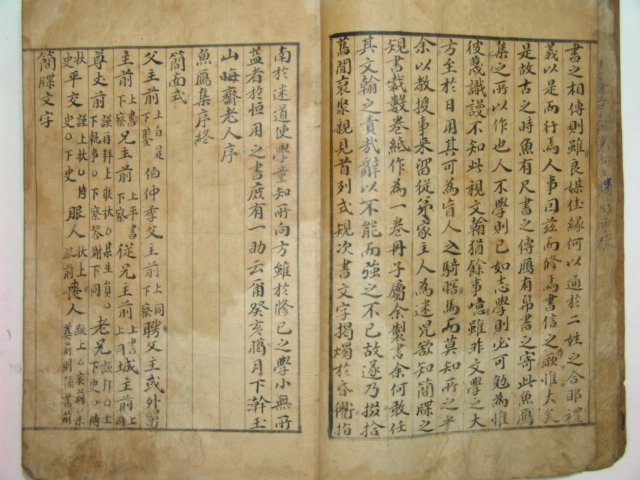 書之相傳則雖良媒佳緣何以通於二姓之合耶禮
義以是而行焉人事因玆而修焉書信之厥惟大矣
是故古之時魚有尺書之傳鴈有帛書之寄此魚鴈
集之所以作也人不學則已如志學則必可勉爲惟
彼蔑識謾不知此視文翰猶餘事噫雖非文學之大
方至於日用其可爲盲人之騎瞎馬而莫知所之乎
余以敎授事來留從弟家主人爲迷兒欲知簡牒之
規書裁數卷紙作爲一卷冊子屬余製書余何敢任
其文翰之責哉辭以不能而強之不已故遂乃掇拾
舊聞裒聚觀見首列式規次書文字揭燭於昏衢指
南於迷道使學童知所向方雖於修己之學小無所
益者於恒用之書庶有一助云爾癸亥臈月下澣玉
山晦齋老人序
魚鴈集序終
簡面式
父主前 上白是 下鑒 伯仲季父主前 上同 下察 聘父主或外舅
主前 上書 下察 兄主前 上平書 下察 從兄主前 上同 城主前 上書
尊丈前 下執事 老兄 下史
平交 下史 服人 服前 喪人
簡牒文字